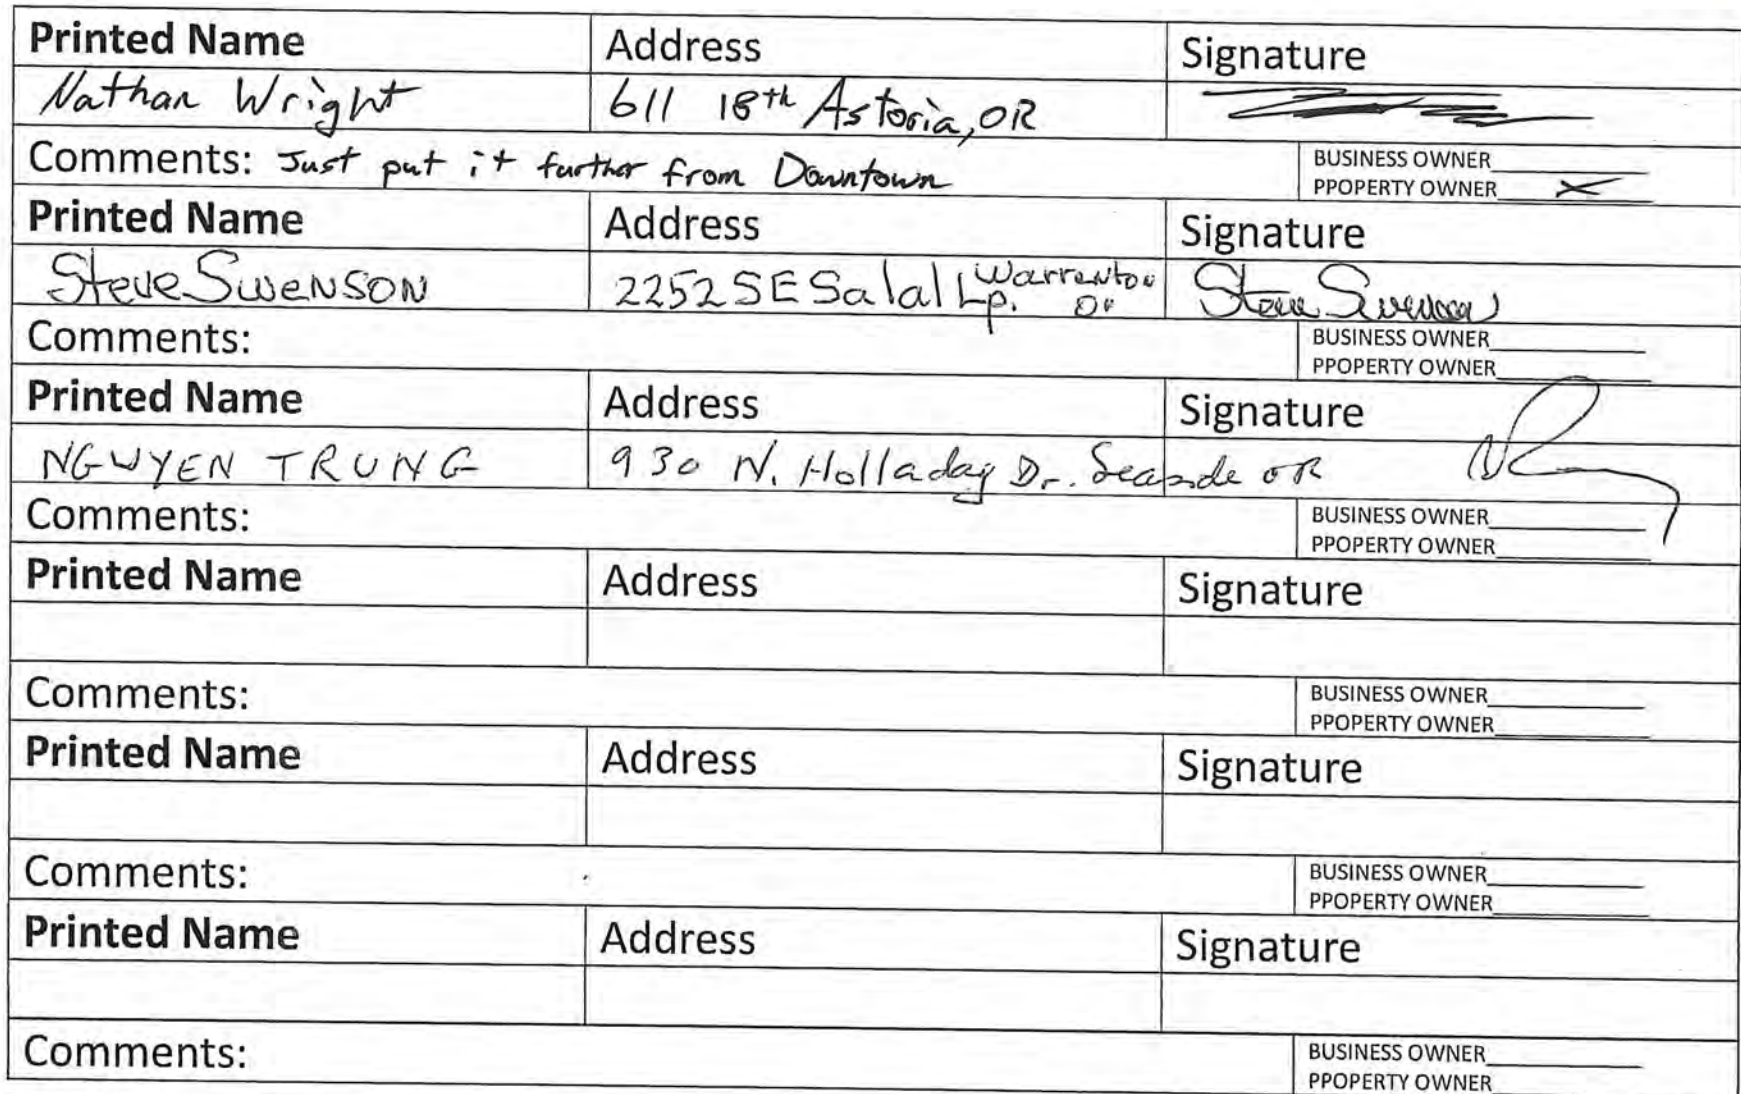 Printed Name Address Signature
Nathan Wright 611 18th Astoria, OR
Comments: Just put it further from Downtown BUSINESS OWNER
PPOPERTY OWNER X
Printed Name Address Signature
Steve Swenson 2252 SE Salal Lp. Warrenton Or Steve Swenson
Comments: BUSINESS OWNER
PPOPERTY OWNER
Printed Name Address Signature
NGUYEN TRUNG 930 N. Holladay Dr. Seaside OR
Comments: BUSINESS OWNER
PPOPERTY OWNER
Printed Name Address Signature
Comments: BUSINESS OWNER
PPOPERTY OWNER
Printed Name Address Signature
Comments: BUSINESS OWNER
PPOPERTY OWNER
Printed Name Address Signature
Comments: BUSINESS OWNER
PPOPERTY OWNER